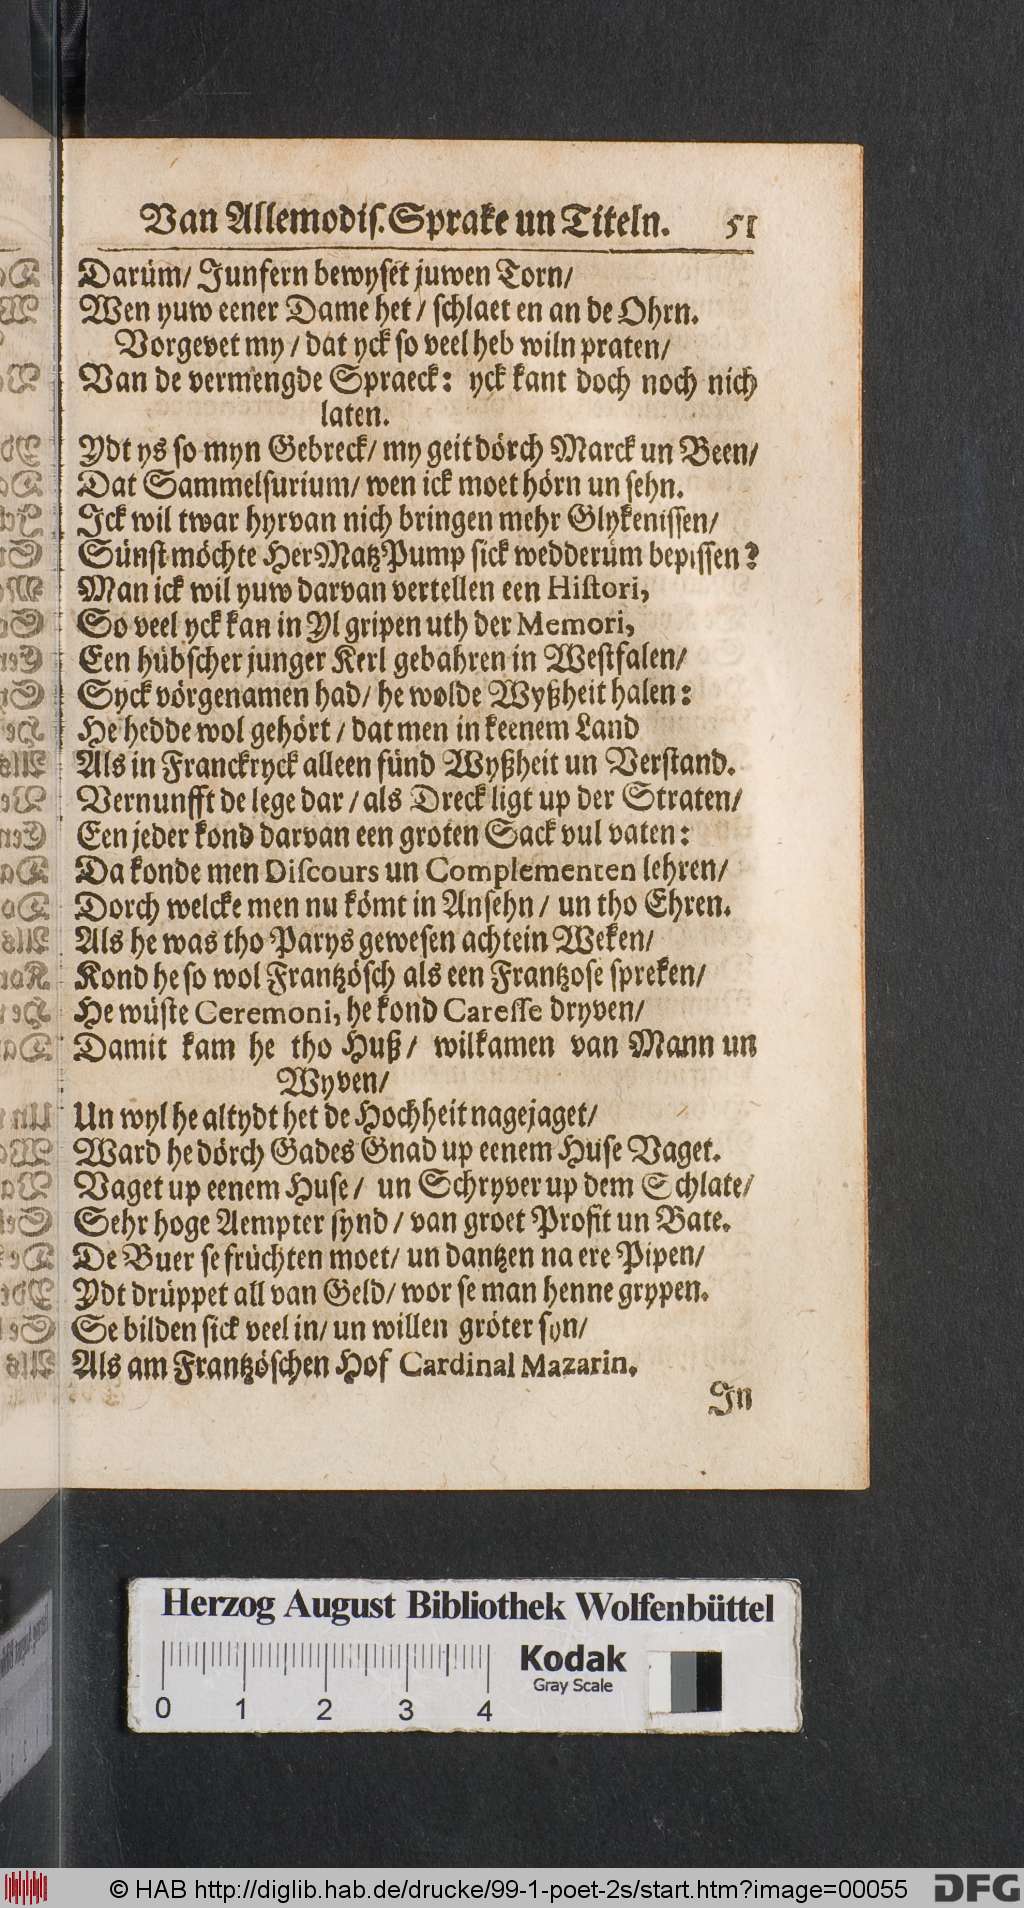 Van Allemodis. Sprake un Titeln. 51
Darüm/ Junfern bewyset juwen Torn/
Wen yuw eener Dame het/ schlaet en an de Ohrn.
Vorgevet my/ dat yck so veel heb wiln praten/
Van de vermengde Spraeck: yck kant doch noch nich
laten.
Ydt ys so myn Gebreck/ my geit dörch Marck un Been/
Dat Sammelsurium/ wen ick moet hörn un sehn.
Ick wil twar hyrvan nich bringen mehr Glykenissen/
Sünst möchte Her Matz Pump sick wedderüm bepissen?
Man ick wil yuw darvan vertellen een Histori,
So veel yck kan in Yl gripen uth der Memori,
Een hübscher junger Kerl gebahren in Westfalen/
Syck vörgenamen had/ he wolde Wyßheit halen:
He hedde wol gehört/ dat men in keenem Land
Als in Franckryck alleen fünd Wyßheit un Verstand.
Vernunfft de lege dar/ als Dreck ligt up der Straten/
Een jeder kond darvan een groten Sack vul vaten:
Da konde men Discours un Complementen lehren/
Dorch welcke men nu kömt in Ansehn/ un tho Ehren.
Als he was tho Parys gewesen achtein Weken/
Kond he so wol Frantzösch als een Frantzose spreken/
He wüste Ceremoni, he kond Caresse dryven/
Damit kam he tho Huß/ wilkamen van Mann un
Wyven/
Un wyl he altydt het de Hochheit nagejaget/
Ward he dörch Gades Gnad up eenem Huse Vaget.
Vaget up eenem Huse/ un Schryver up dem Schlate/
Sehr hoge Aempter synd/ van groet Profit un Bate.
De Buer se früchten moet/ un dantzen na ere Pipen/
Ydt drüppet all van Geld/ wor se man henne grypen.
Se bilden sick veel in/ un willen gröter syn/
Als am Frantzöschen Hof Cardinal Mazarin.
In
Herzog August Bibliothek Wolfenbüttel
0 1 2 3 4
Kodak
Gray Scale
© HAB http://diglib.hab.de/drucke/99-1-poet-2s/start.htm?image=00055
DFG